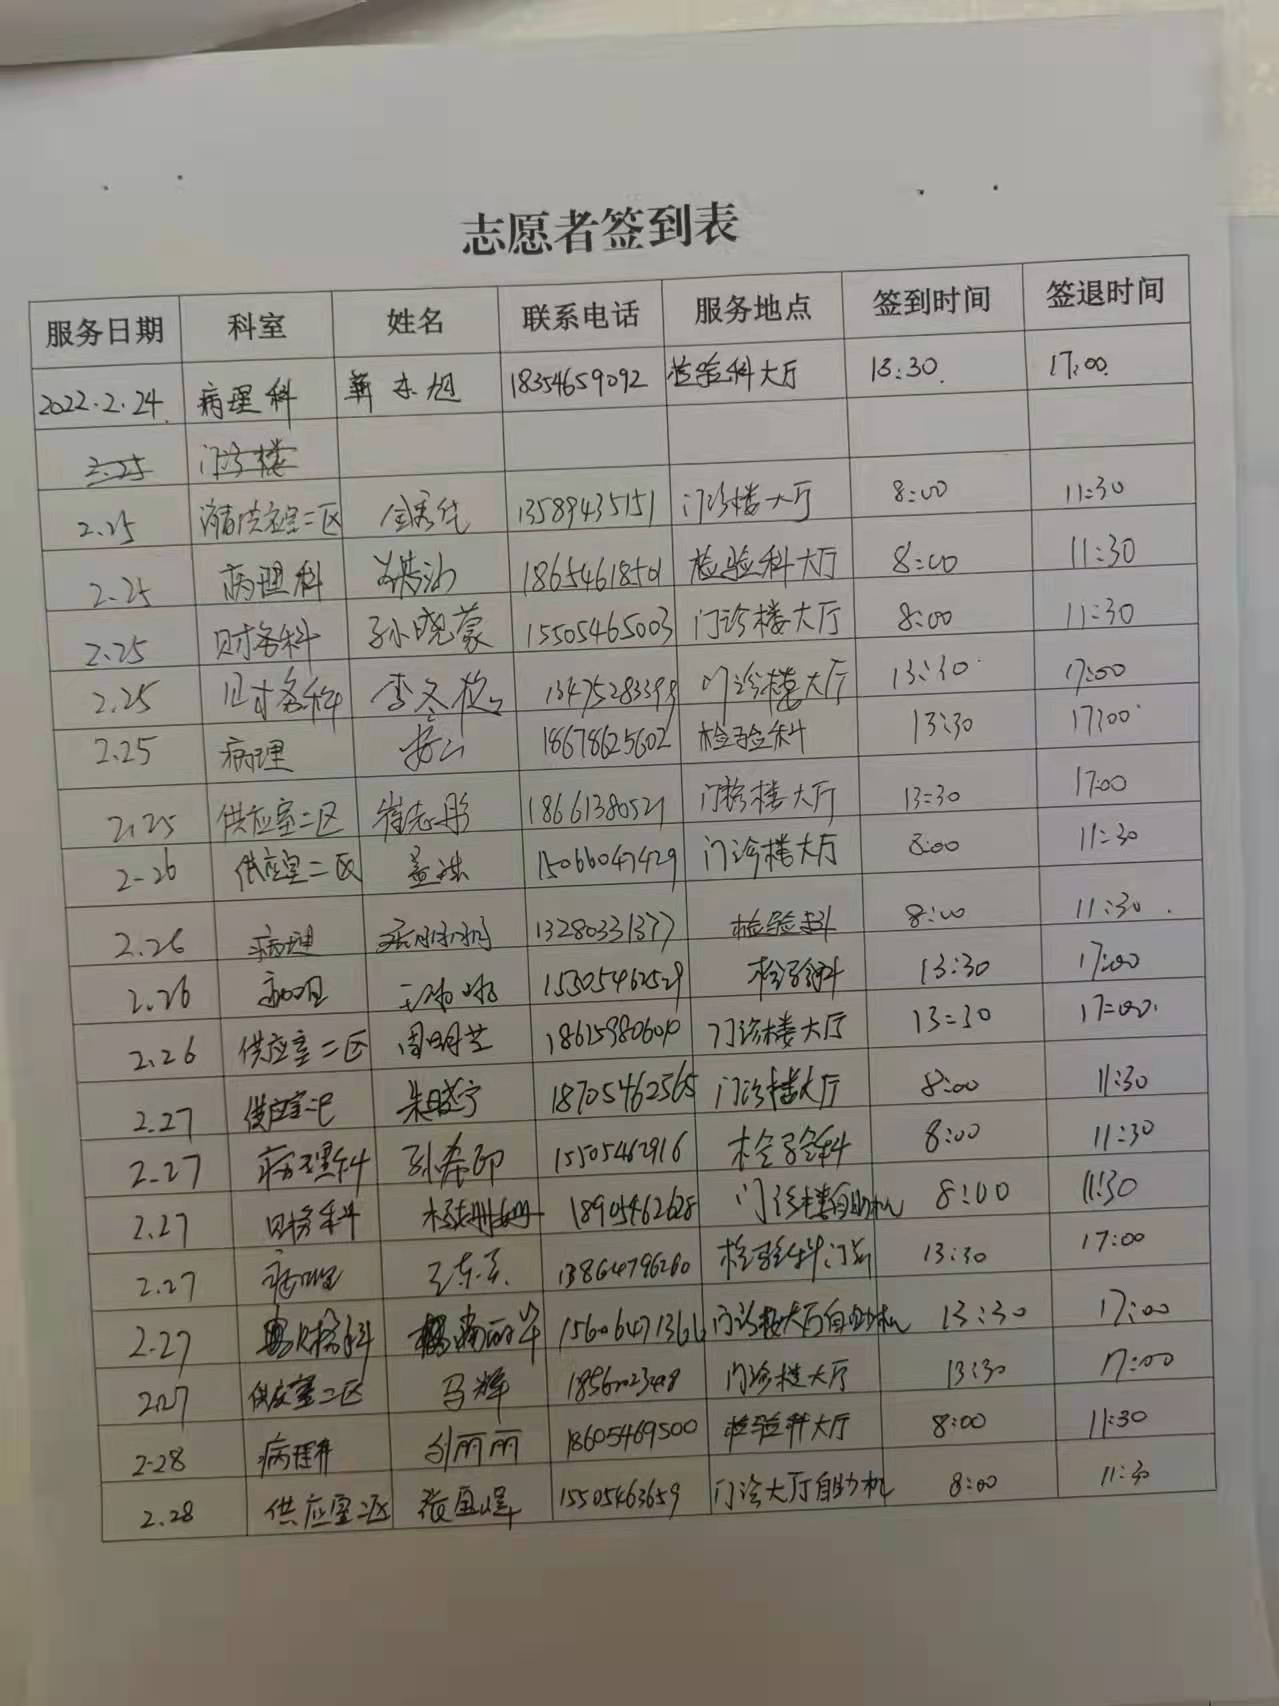 志愿者签到表
服务日期 科室 姓名 联系电话 服务地点 签到时间 签退时间
2022.2.24 病理科 旭 18354659092 检验科大厅 13:30 17:00
2.25 门诊楼
2.25 二区 13589435151 门诊楼大厅 8:00 11:30
2.25 病理科 18654618501 检验科大厅 8:00 11:30
2.25 财务科 孙晓蒙 15505465003 门诊楼大厅 8:00 11:30
2.25 财务科 李冬 13475283399 门诊楼大厅 13:30 17:00
2.25 病理 18678625602 检验科 13:30 17:00
2.25 供应室二区 崔志彤 18661380521 门诊楼大厅 13:30 17:00
2-26 供应室二区 15066047429 门诊楼大厅 8:00 11:30
2.26 病理 13280331377 检验科 8:00 11:30
2.26 病理 15305462529 检验科 13:30 17:00
2.26 供应室二区 周明芝 门诊楼大厅 13:30 17:00
2.27 供应室二区 朱晓宁 18705462565 门诊楼大厅 8:00 11:30
2.27 病理科 孙希印 15505462916 检验科 8:00 11:30
2.27 财务科 18905462628 门诊楼自助机 8:00 11:30
2.27 病理 13864796260 检验科门诊 13:30 17:00
2.27 财务科 15606471366 门诊楼大厅自助机 13:30 17:00
2.27 供应室二区 马辉 门诊楼大厅 13:30 17:00
2-28 病理科 刘丽丽 18605469500 检验科大厅 8:00 11:30
2.28 供应室二区 张国峰 15505463659 门诊大厅自助机 8:00 11:30